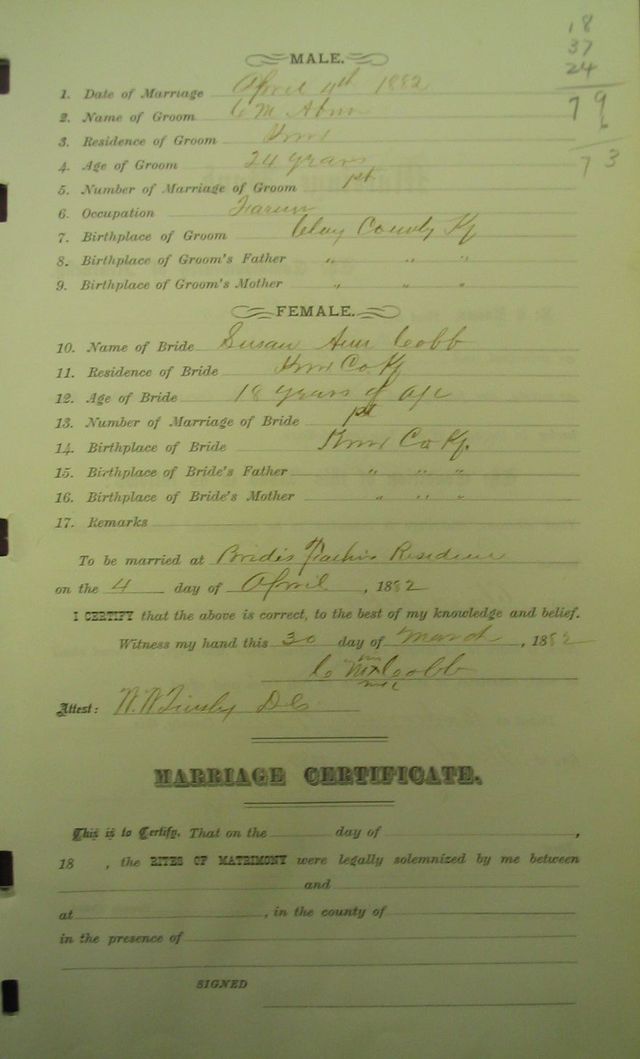 18
37
24
79
6
73
MALE.
1. Date of Marriage April 4th 1882
2. Name of Groom C M
3. Residence of Groom Knox
4. Age of Groom 24 years
5. Number of Marriage of Groom 1st
6. Occupation Farmer
7. Birthplace of Groom Clay County Ky
8. Birthplace of Groom's Father " " "
9. Birthplace of Groom's Mother " " "
FEMALE.
10. Name of Bride Susan Ann Cobb
11. Residence of Bride Knox Co Ky
12. Age of Bride 18 years of age
13. Number of Marriage of Bride 1st
14. Birthplace of Bride Knox Co Ky.
15. Birthplace of Bride's Father " " "
16. Birthplace of Bride's Mother " " "
17. Remarks
To be married at Brides Fathers Residence
on the 4 day of April, 1882
I CERTIFY that the above is correct, to the best of my knowledge and belief.
Witness my hand this 30 day of March, 1882
Cobb
Attest: W. W. Tinsley D.C.
MARRIAGE CERTIFICATE.
This is to Certify, That on the day of ,
18 , the RITES OF MATRIMONY were legally solemnized by me between
and
at , in the county of
in the presence of
SIGNED